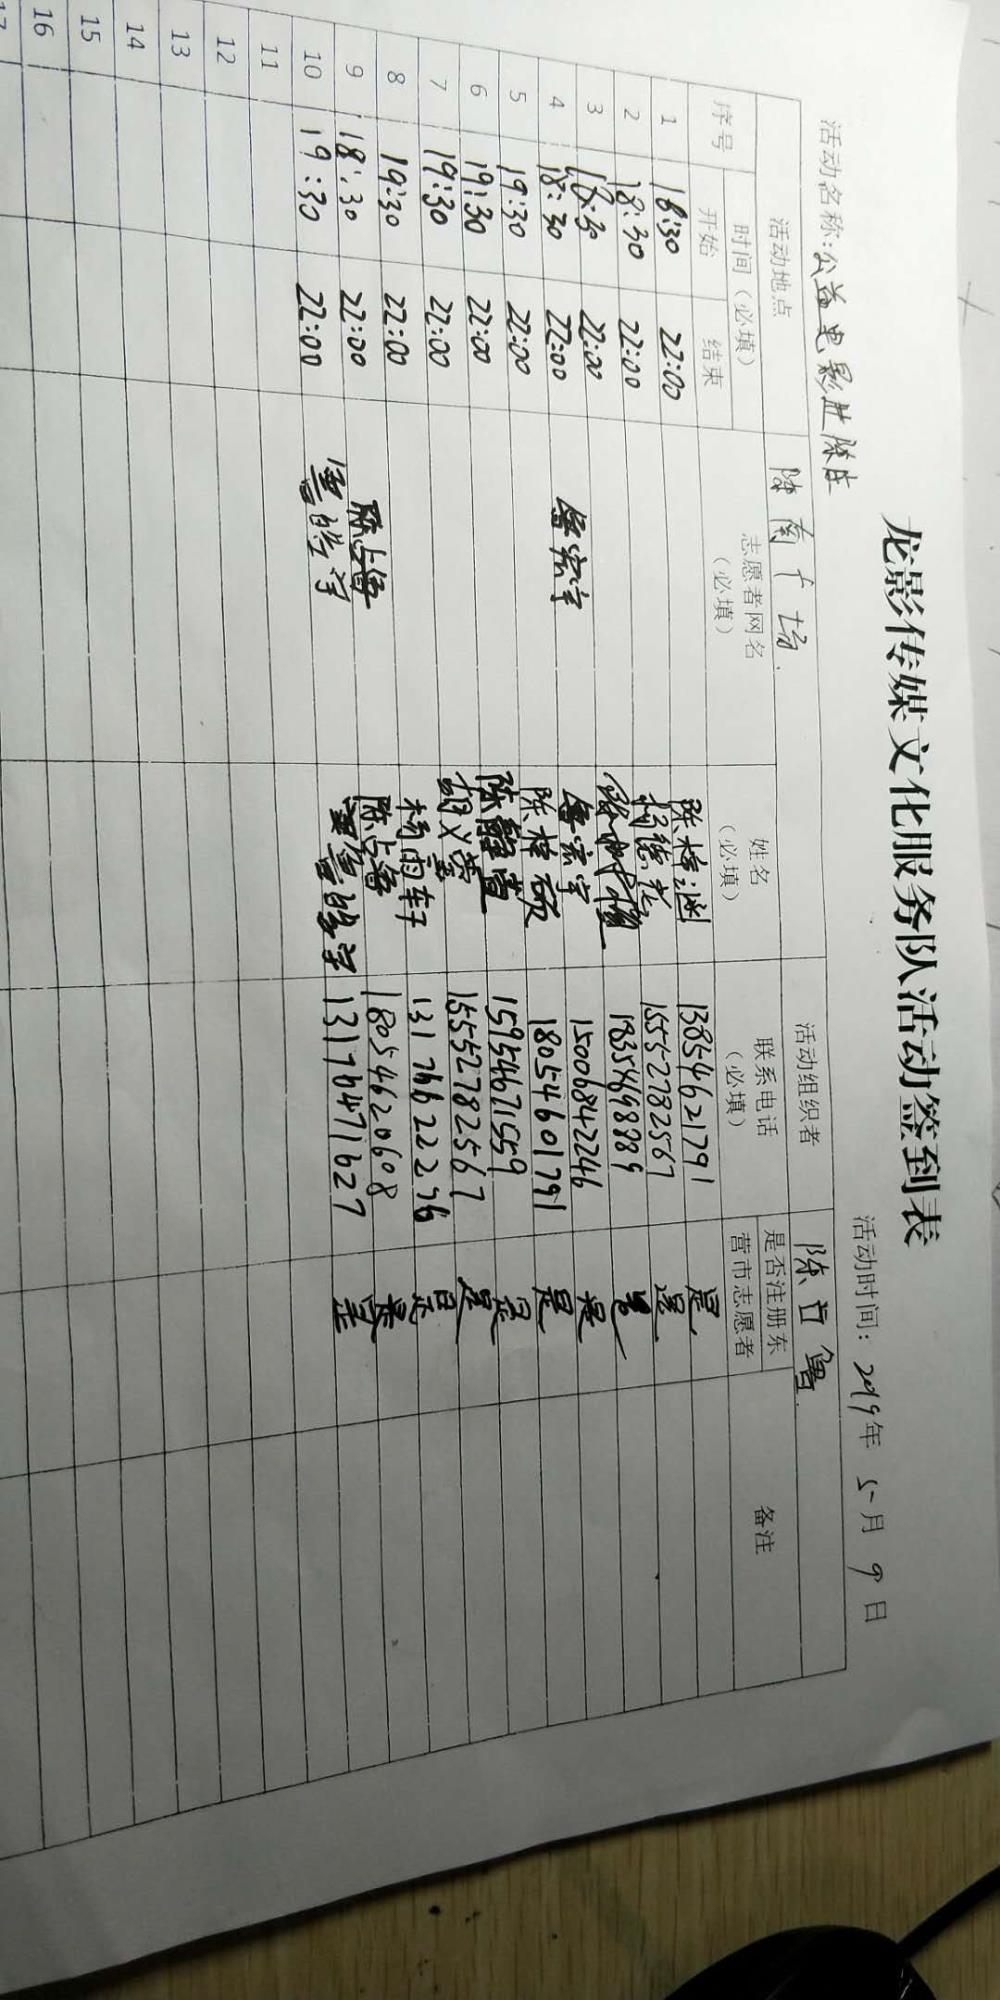 龙影传媒文化服务队活动签到表
活动名称:公益电影进陈庄 活动时间: 2019年 5月 9日
活动地点 陈南广场. 活动组织者 陈占鲁.
序号 时间(必填) 志愿者网名(必填) 姓名(必填) 联系电话(必填) 是否注册东营市志愿者 备注
开始 结束
1 18:30 22:00 陈梓涵 13854621791 是
2 18:30 22:00 15552782567 是
3 18:30 22:00 是
4 18:30 22:00 15006842246 是
5 19:30 22:00 陈梓硕 18054601791 是
6 19:30 22:00 15954671559 是
7 19:30 22:00 胡义 15552782567 是
8 19:30 22:00 杨雨轩 是
9 18:30 22:00 陈占鲁 陈占鲁 18054620608 是
10 19:30 22:00 13176471627 是
11
12
13
14
15
16
17